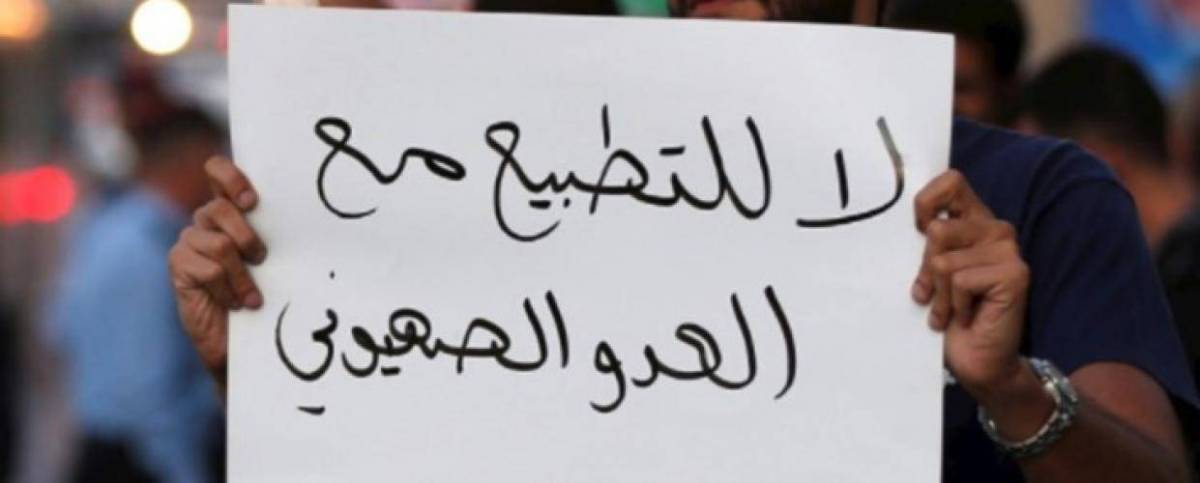 لا للتطبيع مع
العدو الصهيوني